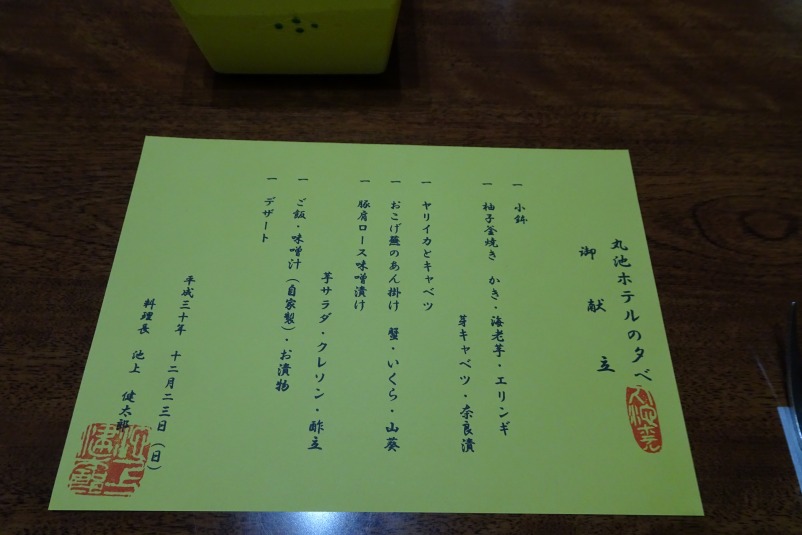 丸池ホテルの夕べ
御献立
一 小鉢
一 柚子釜焼き かき・海老芋・エリンギ
芽キャベツ・奈良漬
一 ヤリイカとキャベツ
一 おこげ蕪のあん掛け 蟹・いくら・山葵
一 豚肩ロース味噌漬け
芋サラダ・クレソン・酢立
一 ご飯・味噌汁(自家製)・お漬物
一 デザート
平成三十年 十二月二三日(日)
料理長 池上 健太郎